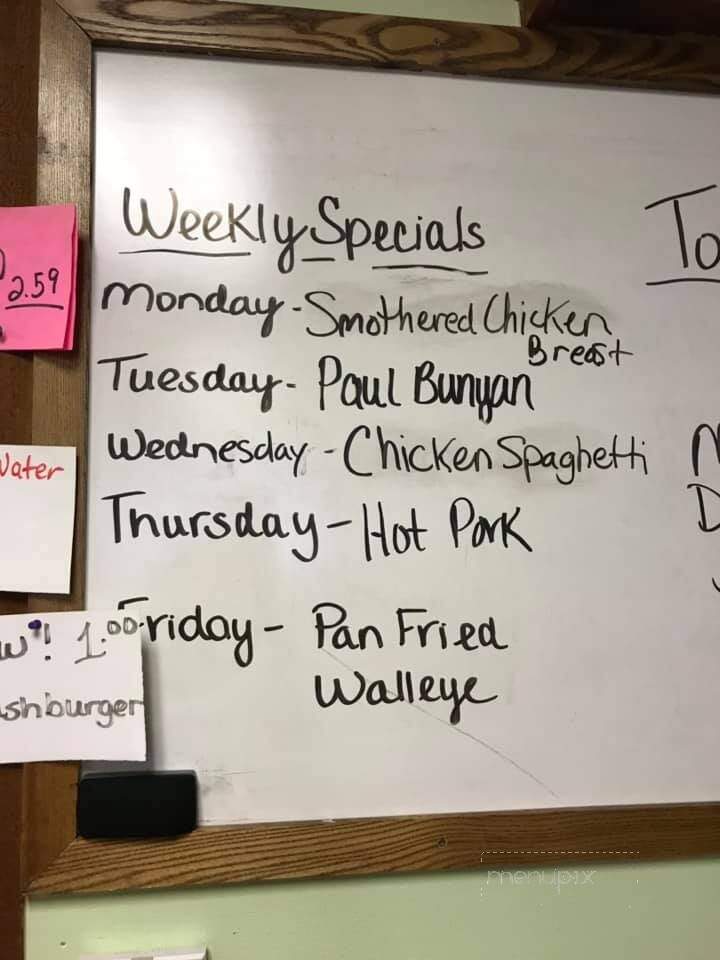 Weekly Specials
Monday - Smothered Chicken
Breast
Tuesday - Paul Bunyan
Wednesday - Chicken Spaghetti
Thursday - Hot Pork
Friday - Pan Fried
Walleye
To
2.59
Water
1.00
shburger
menupix